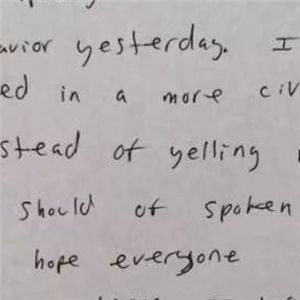 avior yesterday. I
ed in a more civ
stead of yelling
should of spoken
hope everyone